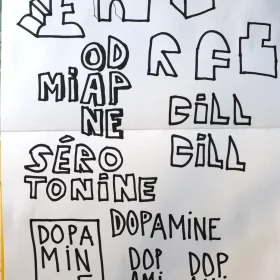 R F
OD
MIAP
NE
GILL
GILL
SÉRO
TONINE
DOPAMINE
DOPA
MIN
DOP
AMI
DOP.